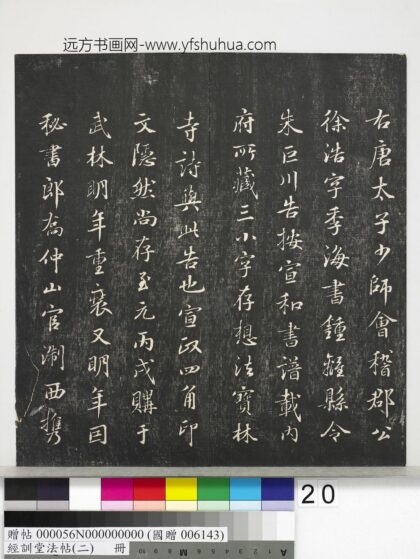 远方书画网-www.yfshuhua.com
右唐太子少師會稽郡公
徐浩字季海書鍾離縣令
朱巨川告按宣和書譜載内
府所藏三小字存想法寶林
寺詩與此告也宣政四角印
文隱然尚存至元丙戌購于
武林明年重裝又明年因
秘書郎喬仲山官淛西携
20
贈帖 000056N000000000 (國贈 006143)
經訓堂法帖(二) 冊